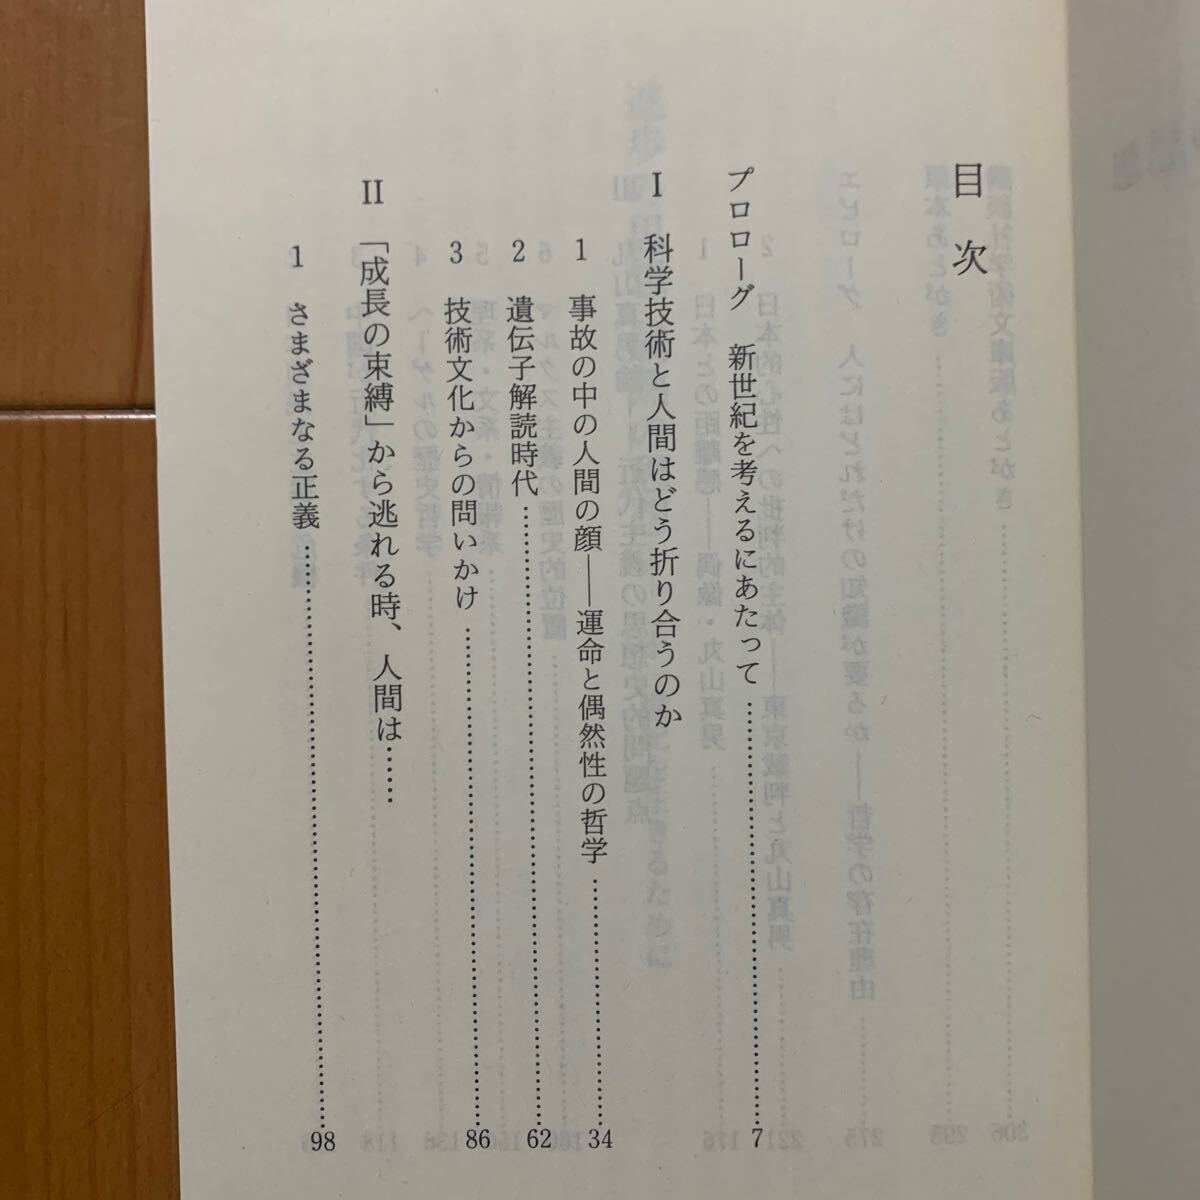 目次
プロローグ　新世紀を考えるにあたって……………………7
I　科学技術と人間はどう折り合うのか
1　事故の中の人間の顔――運命と偶然性の哲学……………34
2　遺伝子解読時代……………………62
3　技術文化からの問いかけ……………………86
II　「成長の束縛」から逃れる時、人間は……
1　さまざまなる正義……………………98